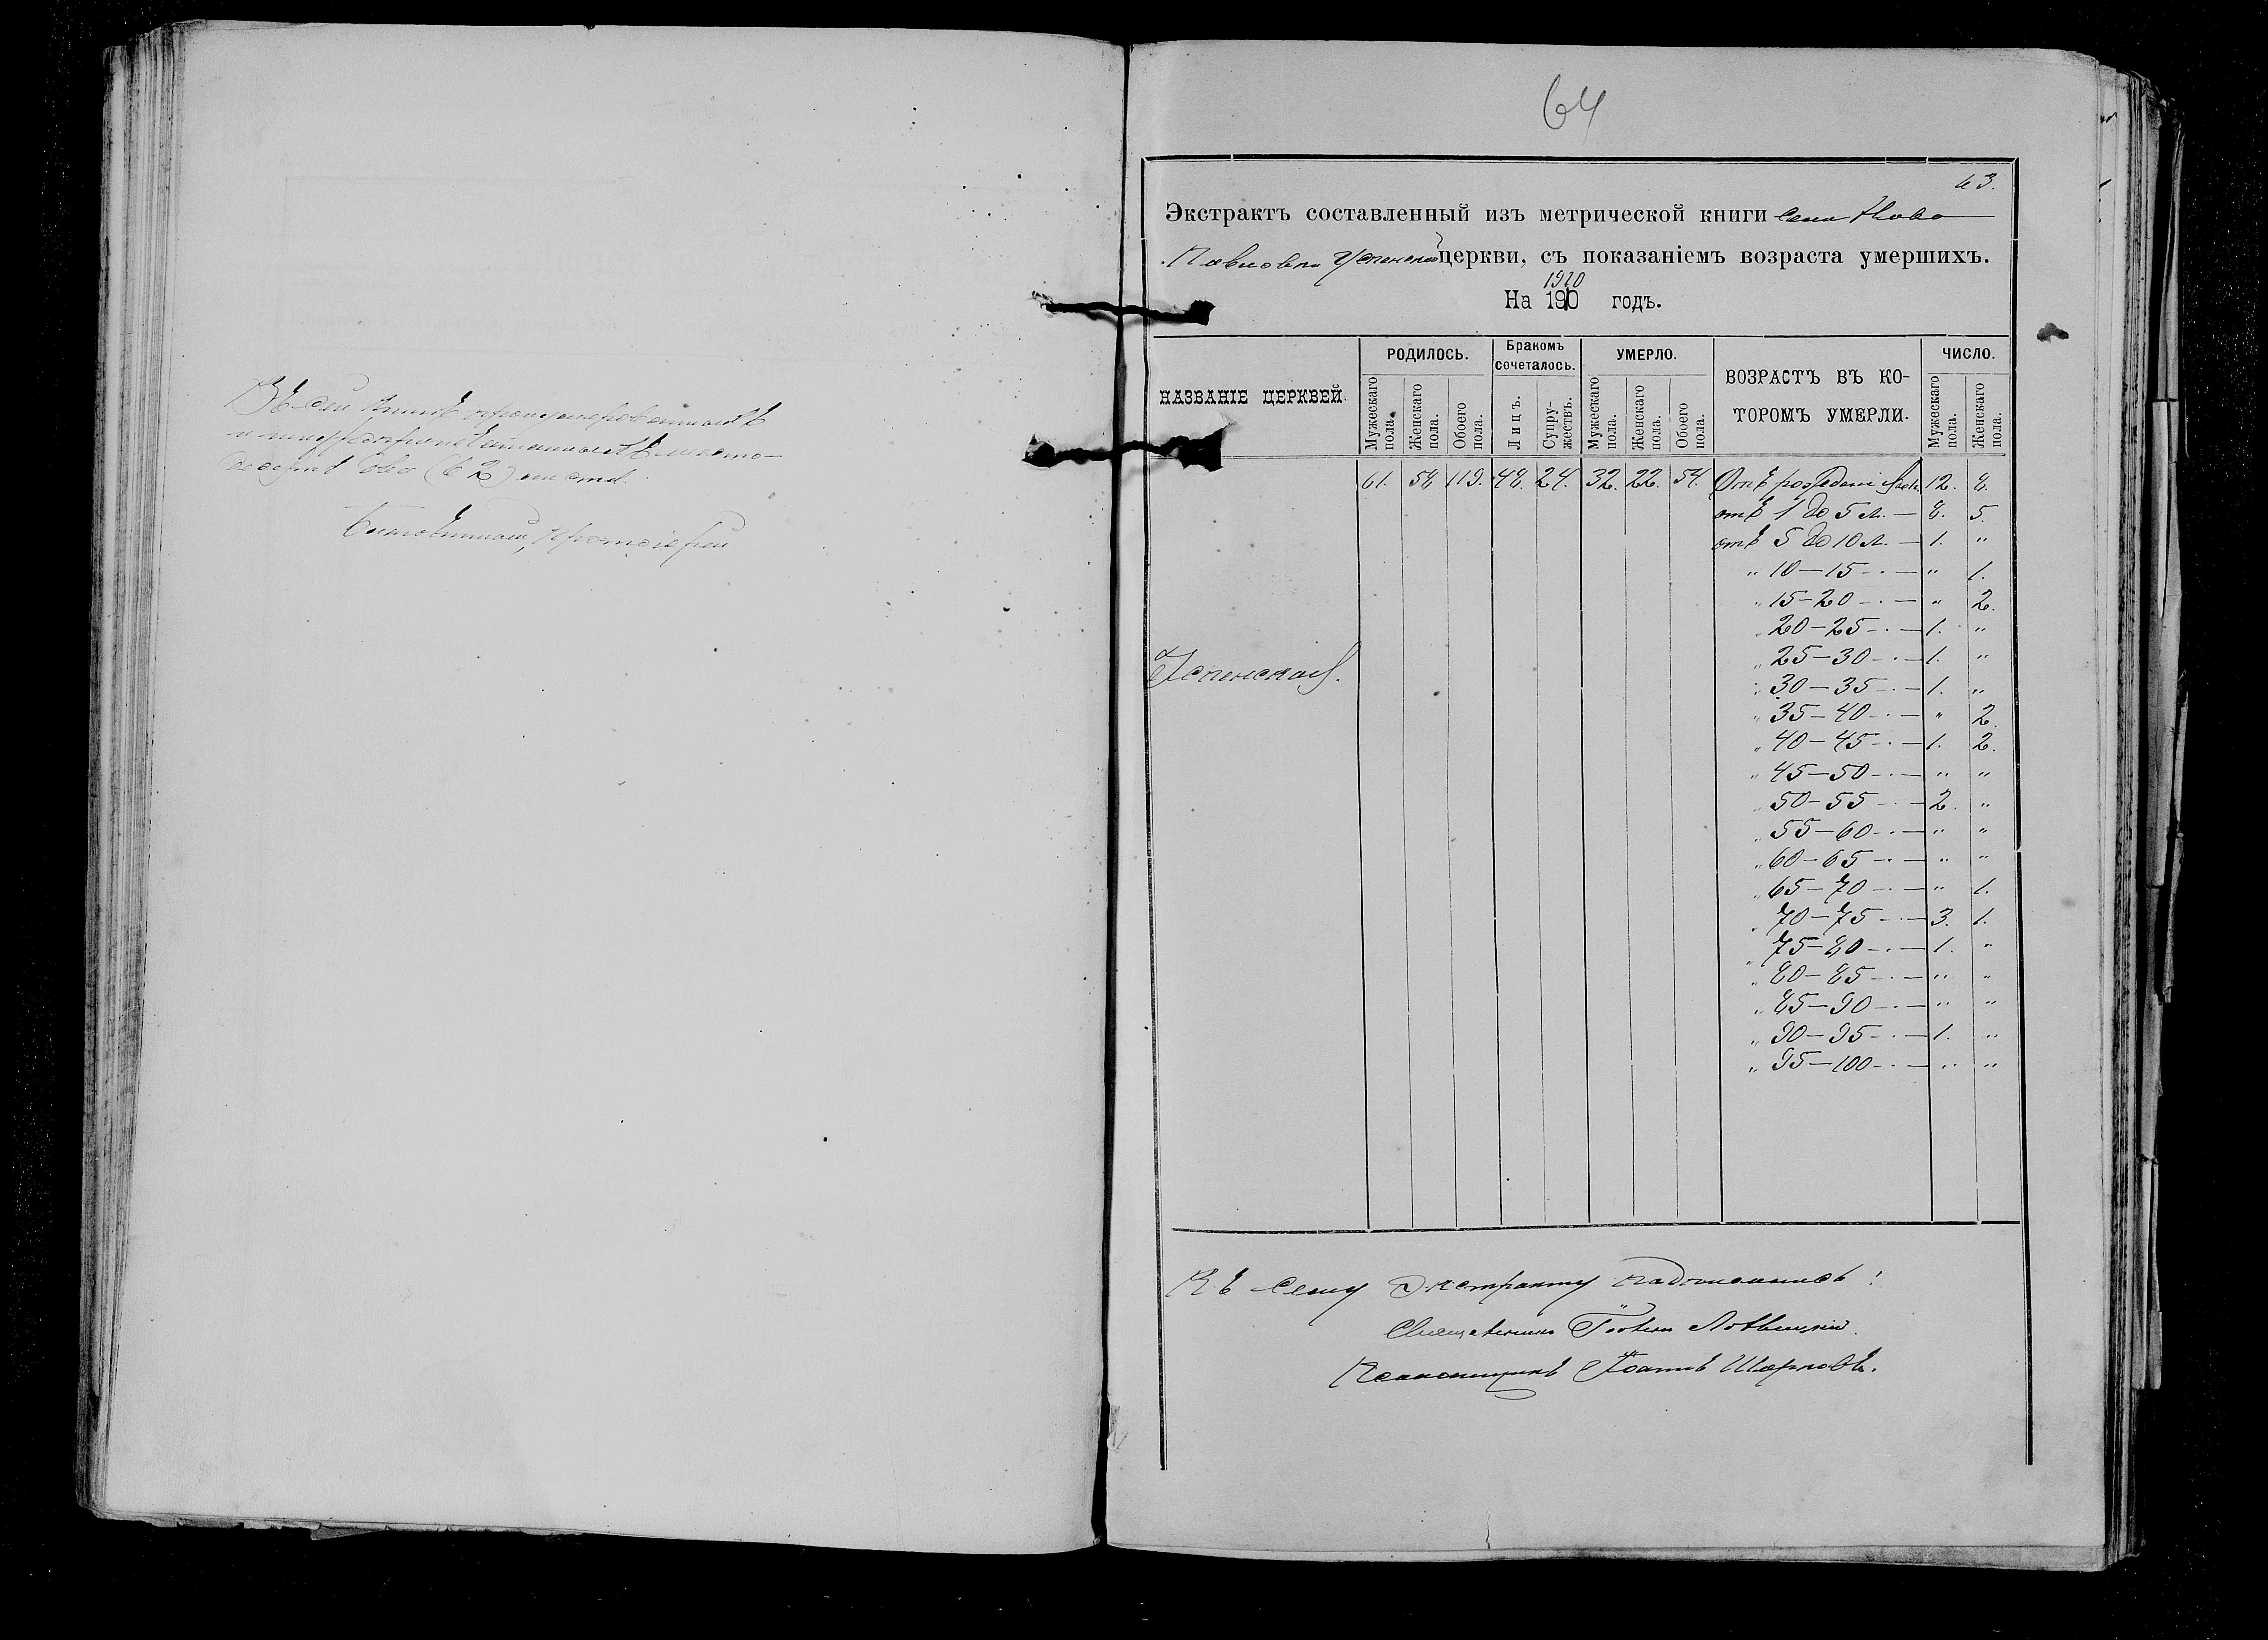 Въ сей книгѣ пронумерованныхъ
и припечатанныхъ шесть-
десятъ два (62) листа.
Благочинный, Протоіерей
64
63.
Экстрактъ составленный изъ метрической книги села Ново
Павловки Успенской церкви, съ показаніемъ возраста умершихъ.
1910
На 1910 годъ.
НАЗВАНІЕ ЦЕРКВЕЙ. РОДИЛОСЬ. Бракомъ сочеталось. УМЕРЛО. ВОЗРАСТЪ ВЪ КО- ТОРОМЪ УМЕРЛИ. ЧИСЛО.
Мужескаго пола. Женскаго пола. Обоего пола. Лицъ. Супру- жествъ. Мужескаго пола. Женскаго пола. Обоего пола. Мужескаго пола. Женскаго пола.
61. 58 119. 48. 24. 32. 22. 54. Отъ рожденія 12. 8.
отъ 1 до 5 л. — 8. 5.
отъ 5 до 10 л. — 1. "
" 10—15 — " 1.
" 15—20 — " 2.
" 20—25 — 1. "
" 25—30 — 1. "
Успенская.
" 30—35 — 1. "
" 35—40 — " 2.
" 40—45 — 1. 2.
" 45—50 — " "
" 50—55 — 2. "
" 55—60 — " "
" 60—65 — " "
" 65—70 — " 1.
" 70—75 — 3. 1.
" 75—80 — 1. "
" 80—85 — " "
" 85—90 — " "
" 90—95 — 1. "
" 95—100 — " "
Къ сему экстракту подписались:
Священникъ
Псаломщикъ Іоаннъ Шарповъ.